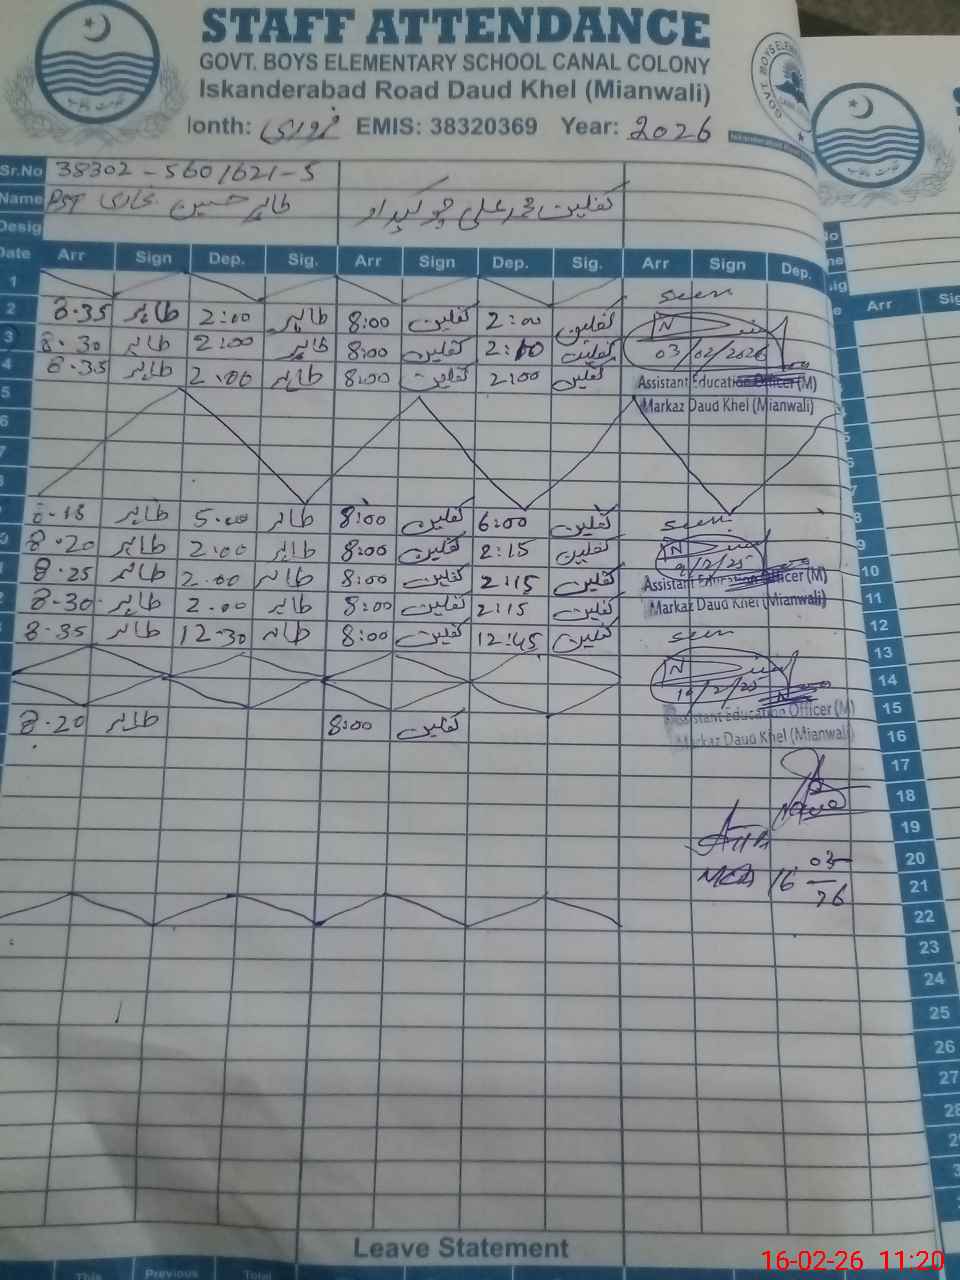 STAFF ATTENDANCE
GOVT. BOYS ELEMENTARY SCHOOL CANAL COLONY
Iskanderabad Road Daud Khel (Mianwali)
lonth: فروری EMIS: 38320369 Year: 2026
Sr.No 38302-5601621-5
Name طاہر حسین غازی PST کفلین محمد علی چوکیدار
Desig
Date Arr Sign Dep. Sig. Arr Sign Dep. Sig. Arr Sign Dep.
1
seen
2 8.35 طاہر 2:00 طاہر 8:00 کفلین 2:00 کفلین
3 8.30 طاہر 2:00 طاہر 8:00 کفلین 2:00 کفلین 03/02/2026
4 8.35 طاہر 2.00 طاہر 8:00 کفلین 2:00 کفلین Assistant Education Officer (M)
5 Markaz Daud Khel (Mianwali)
6
7
8.15 طاہر 5.00 طاہر 8:00 کفلین 6:00 کفلین seen
8.20 طاہر 2.00 طاہر 8:00 کفلین 2:15 کفلین 9/2/25
8.25 طاہر 2.00 طاہر 8:00 کفلین 2:15 کفلین Assistant Education Officer (M)
8.30 طاہر 2.00 طاہر 8:00 کفلین 2:15 کفلین Markaz Daud Khel (Mianwali)
8.35 طاہر 12.30 طاہر 8:00 کفلین 12:45 کفلین seen
Assistant Education Officer (M)
8.20 طاہر 8:00 کفلین Markaz Daud Khel (Mianwali)
MEA 16 03 26
Leave Statement
This Previous Total
Arr Sig
8
9
10
11
12
13
14
15
16
17
18
19
20
21
22
23
24
25
26
27
28
16-02-26 11:20